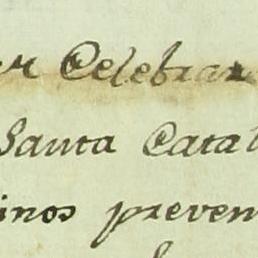 er Celebrar
Santa Catal
inos preven